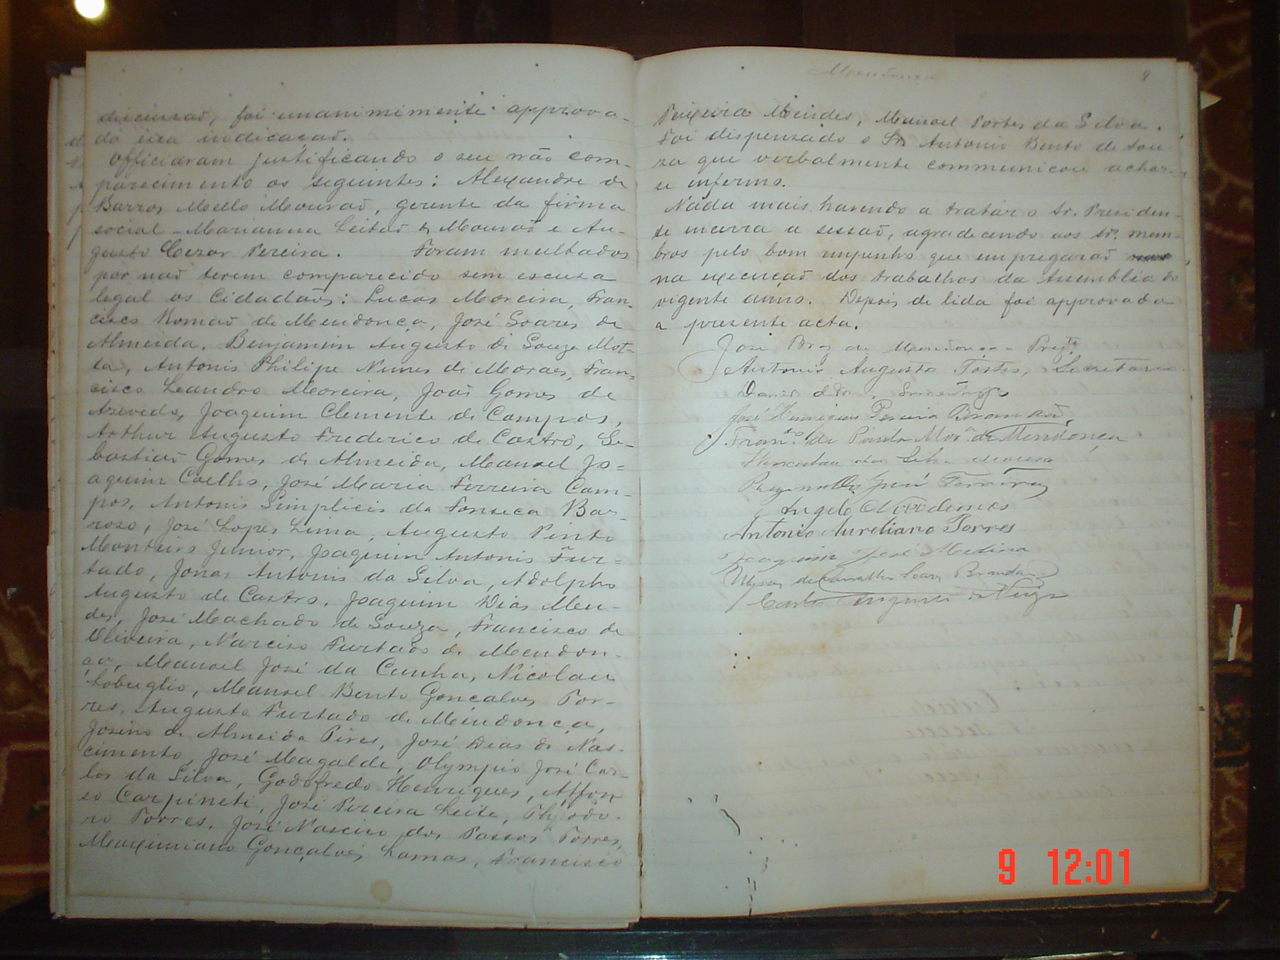 discussaõ, foi unanimimente approva-
do
Officiaram justificando o seu não com-
parecimento os seguintes: Alexandre de
Barros Mello Mouraõ, gerente da firma
social - Marianna Leitaõ & Mouraõ e Au-
gusto Cezar Pereira. Foram multados
por naõ terem comparecido sem escusa
legal os Cidadaõs: Lucas Moreira, Fran-
cisco Romaõ de Mendonça, José Soares de
Almeida, Benjamim Augusto de Souza Mot-
ta, Antonio Philipe Nunes de Moraes, Fran-
cisco Leandro Moreira, Joaõ Gomes de
Azevedo, Joaquim Clemente de Campos,
Arthur Augusto Frederico de Castro, Se-
bastiaõ Gomes de Almeida, Manoel Jo-
aquim Coelho, José Maria Ferreira Cam-
pos, Antonio Simplicio da Fonseca Bar-
rozo, José Lopes Lima, Augusto Pinto
Monteiro Junior, Joaquim Antonio Fur-
tado, Jonas Antonio da Silva, Adolpho
Augusto de Castro, Joaquim Dias Men-
des, José Machado de Souza, Francisco de
Oliveira, Narciso Furtado de Mendon-
ça, Manoel José da Cunha, Nicolau
Lobuglio, Manoel Bento Gonçalves Tor-
res, Augusto Furtado de Mendonça,
Josino de Almeida Pires, José Dias do Nas-
cimento, José Magaldi, Olympio José Car-
los da Silva, Godofredo Henriques, Affon-
so Carpineti, José Pereira Leite, Theodo-
ro Torres, José Narciso dos Passos Torres,
Maximiano Gonçalves Lamas, Francisco
Mendonça
Teixeira Mendes, Manoel Portes da Silva.
Foi dispensado o Sr. Antonio Bento de Sou-
za que verbalmente communicou achar-
se enfermo.
Nada mais havendo a tratar o Sr. Presiden-
te encerra a sessaõ, agradecendo aos Srs. mem-
bros pelo bom empenho que empregaraõ
na execuçaõ dos trabalhos da Assemblia do
vigente anno. Depois de lida foi approvada
a presente acta.
José Braz de Mendonça - Presd.e
Antonio Augusto Tostes, Secretario
José Pereira
Fran.co de Paula Mor.a de Mendonça
da Silva Moreira
José Ferreira
Angelo
Antonio Aureliano Torres
Joaquim José Medina
de Carvalho Brandão
Carlos Augusto de
9 12:01